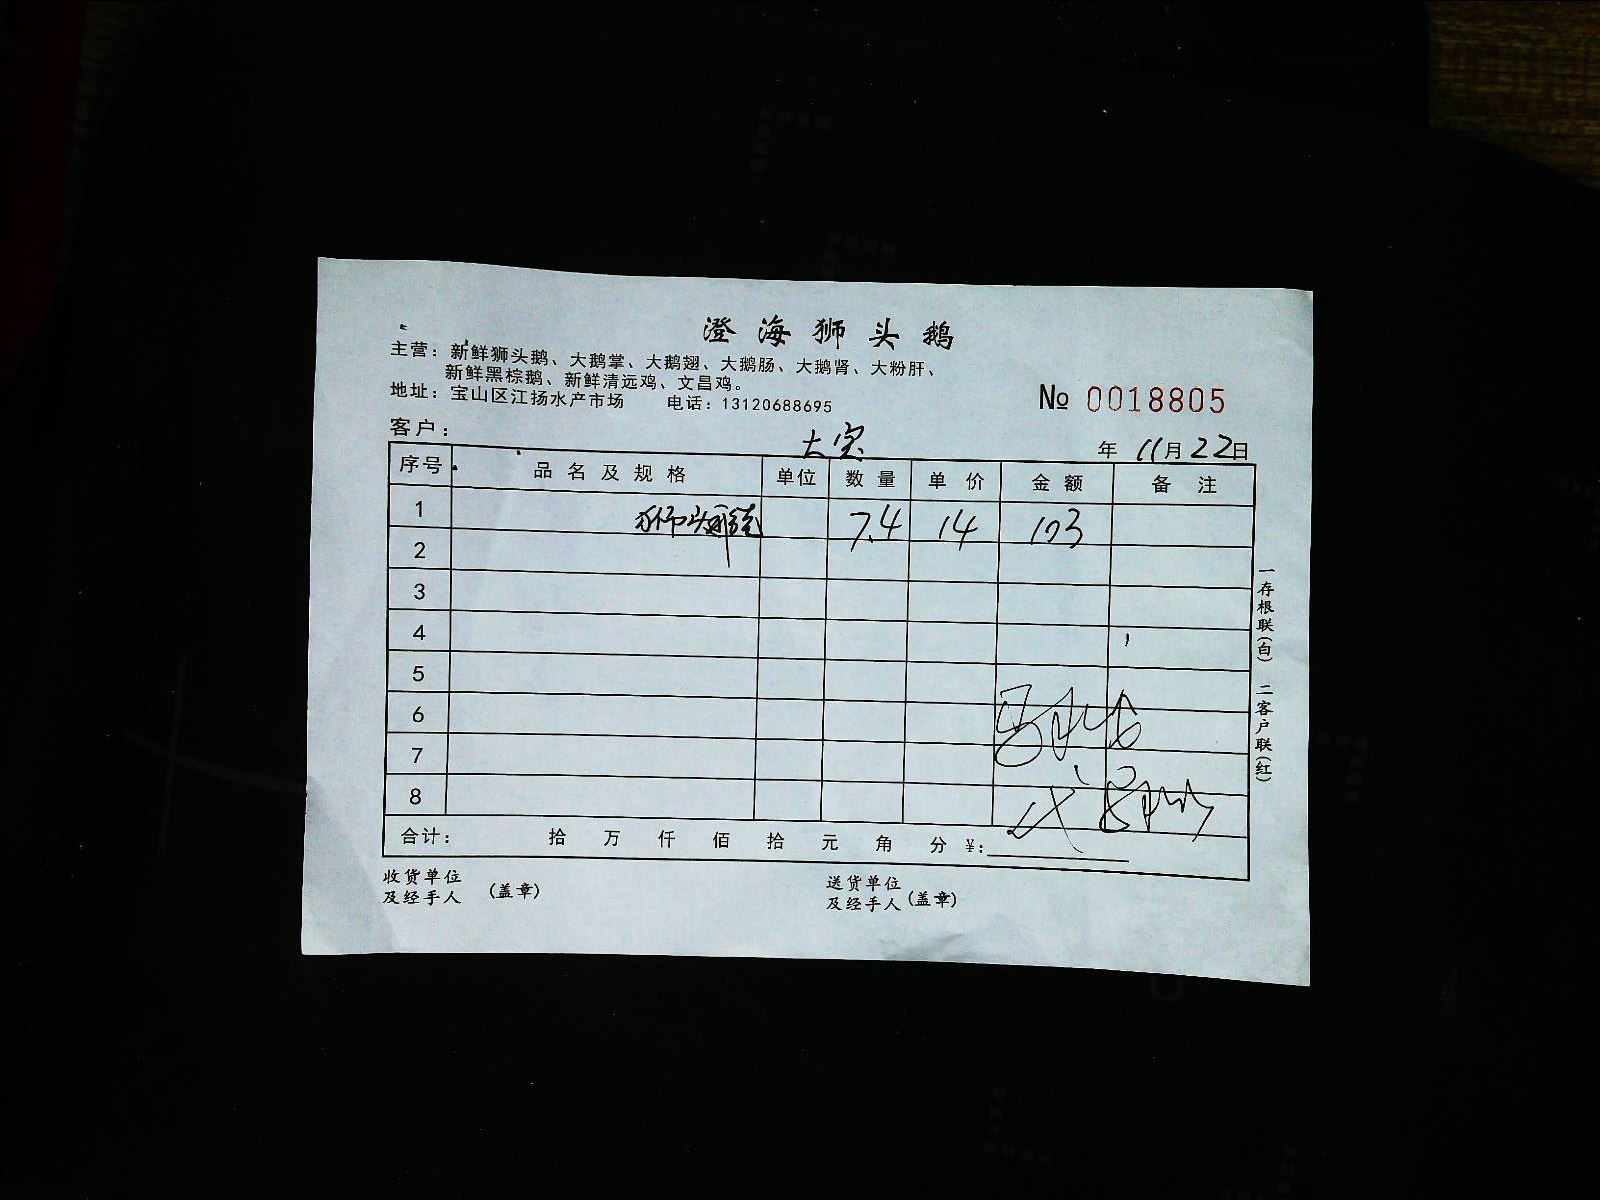 澄海狮头鹅
主营：新鲜狮头鹅、大鹅掌、大鹅翅、大鹅肠、大鹅肾、大粉肝、
新鲜黑棕鹅、新鲜清远鸡、文昌鸡。
地址：宝山区江扬水产市场 电话：13120688695
№ 0018805
客户： 大宝 年 11月22日
序号 品名及规格 单位 数量 单价 金额 备注
1 狮头鹅 7.4 14 103
2
3
4
5
6
7
8
合计： 拾 万 仟 佰 拾 元 角 分 ¥：
收货单位
及经手人 （盖章）
送货单位
及经手人（盖章）
一存根联（白） 二客户联（红）